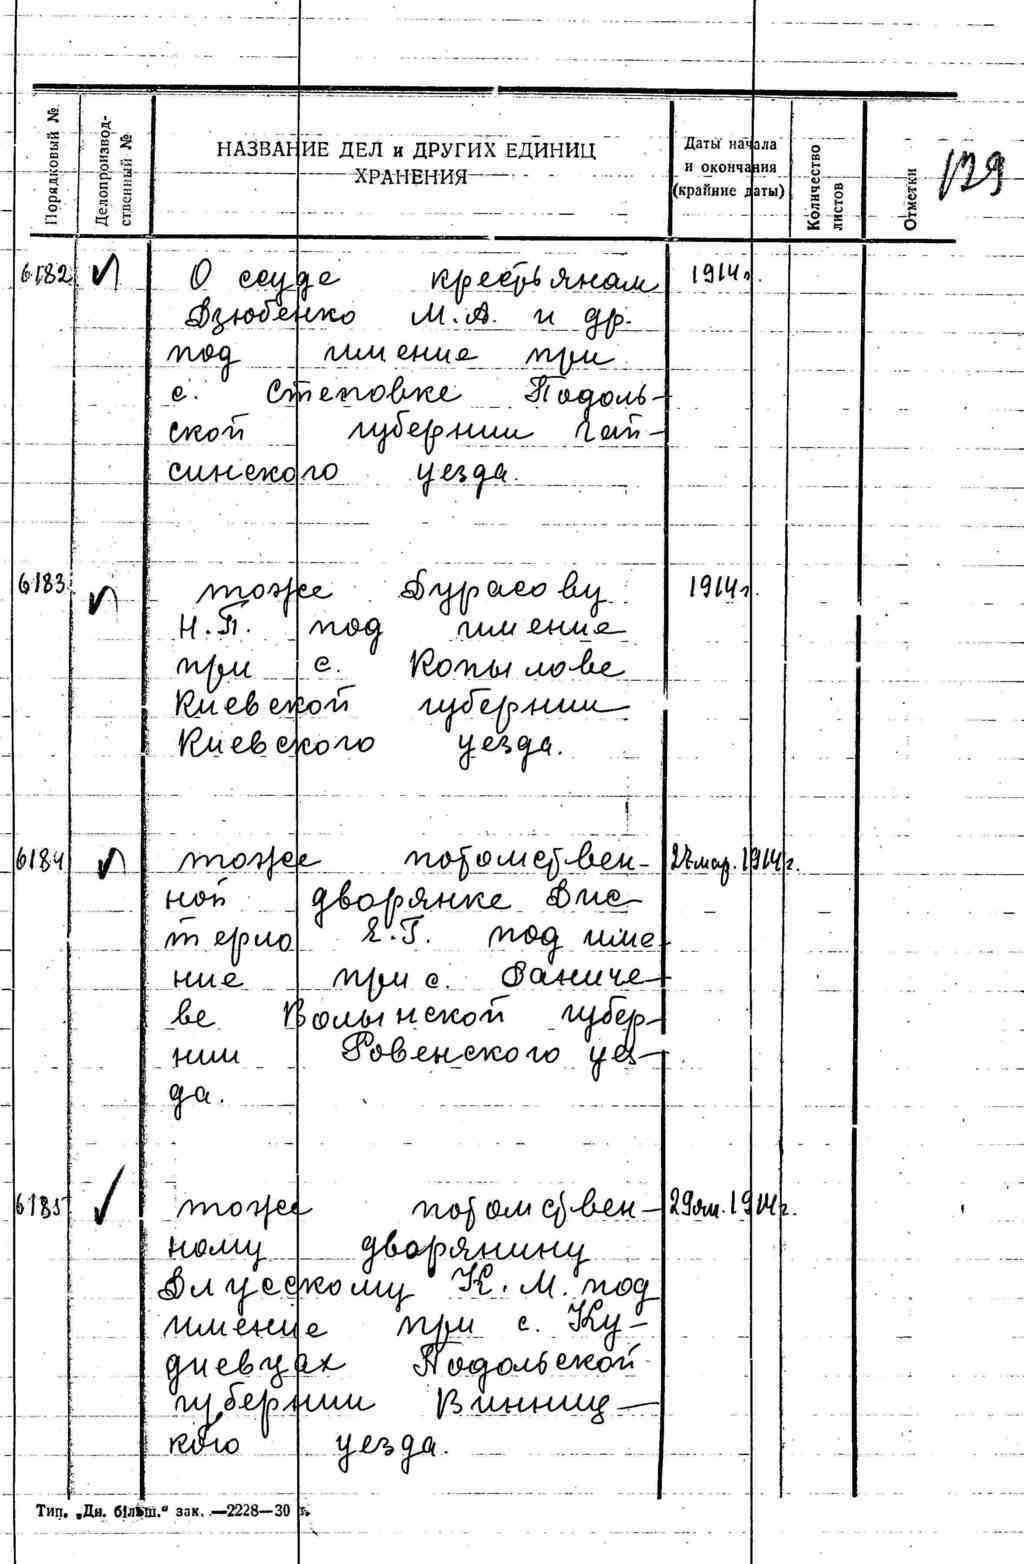 129
Порядковый №
Делопроизвод-
ственный №
НАЗВАНИЕ ДЕЛ и ДРУГИХ ЕДИНИЦ
ХРАНЕНИЯ
Даты начала
и окончания
(крайние даты)
Количество
листов
Отметки
6182 О ссуде крестьянам 1914г.
Дзюбенко М.А. и др.
под имение при
с. Степовке Подоль-
ской губернии Гай-
синского уезда.
6183 тоже Дурасову 1914г.
Н.П. под имение
при с. Копылове
Киевской губернии
Киевского уезда.
6184 тоже потомствен- мар. 1914г.
ной дворянке Вис-
терио Е.Г. под име-
ние при с.
ве Волынской губер-
нии Ровенского уез-
да.
6185 тоже потомствен- 29 1914г.
ному дворянину
К.М. под
имение при с. Ку-
диевцах Подольской
губернии Винниц-
кого уезда.
Тип. „Дн. більш.“ зак. —2228—30 г.